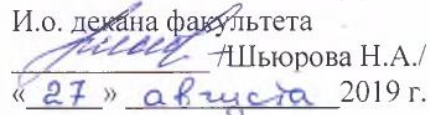 И.о. декана факультета
/Шьюрова Н.А./
« 27 » августа 2019 г.